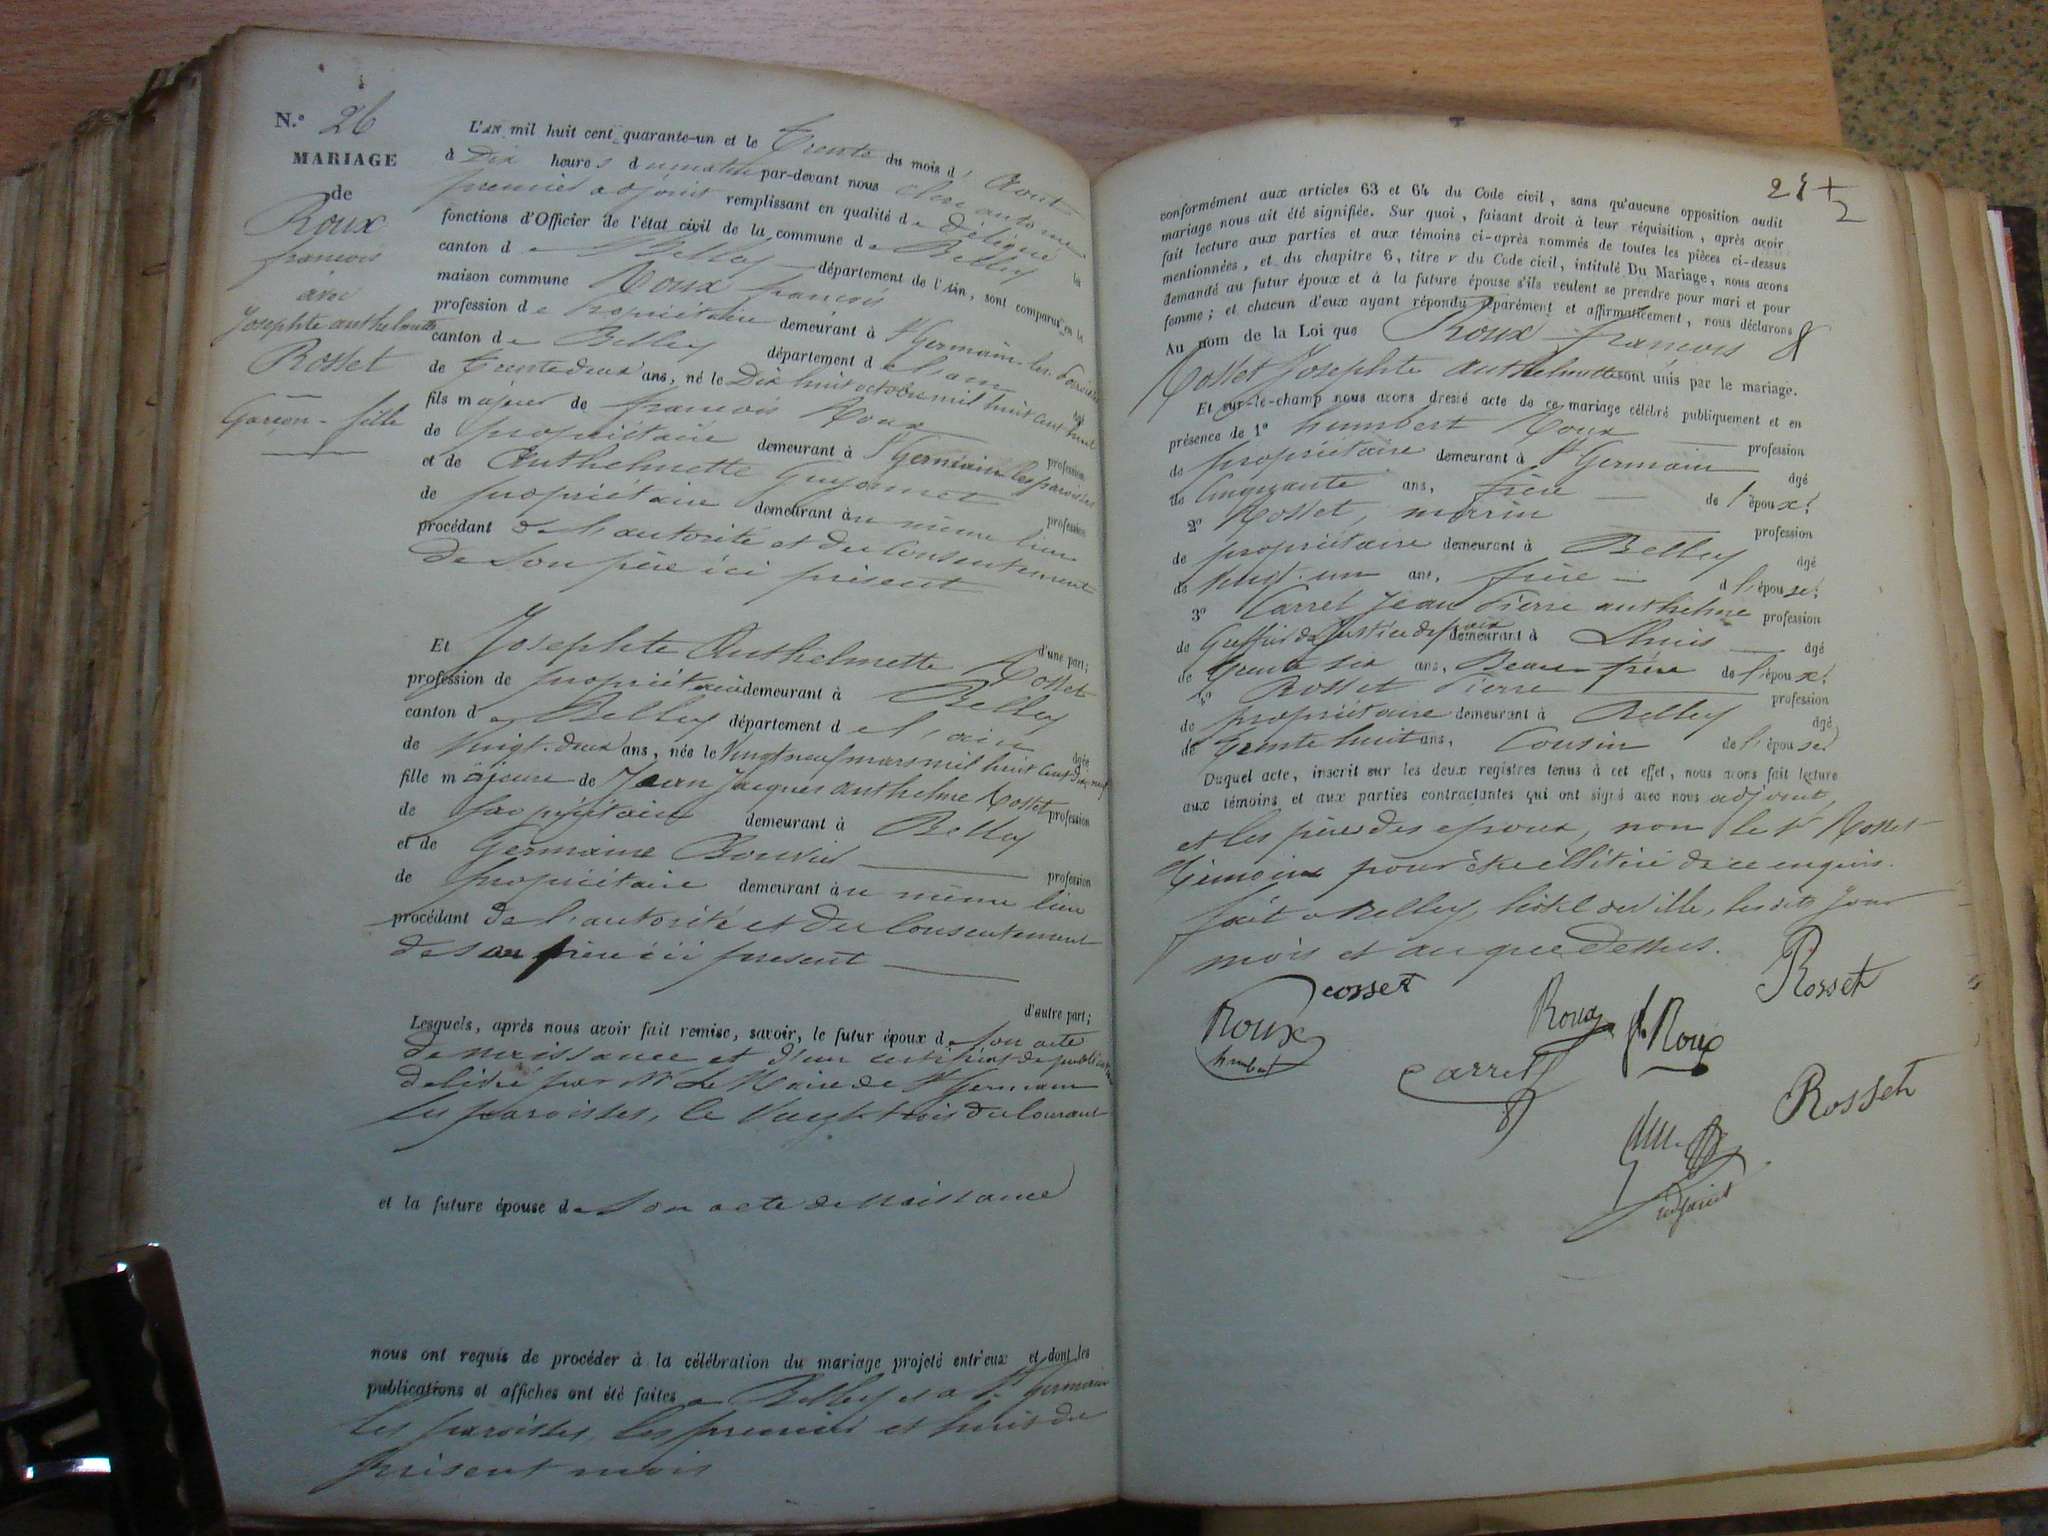 N.° 26
MARIAGE
de
Roux
francois
avec
Josephte anthelmette
Rosset
Garçon - fille
L'AN mil huit cent quarante-un et le Trente du mois d'Aout
à Dix heures du matin par-devant nous
premier adjoint remplissant en qualité de délégué les
fonctions d'Officier de l'état civil de la commune de Belley
canton de Belley département de l'Ain, sont comparus en la
maison commune Roux françois
profession de propriétaire demeurant à St Germain les Paroisses
canton de Belley département de l'ain âgé
de Trente deux ans, né le Dix huit octobre mil huit cent huit
fils majeur de francois Roux profession
de propriétaire demeurant à St Germain les paroisses
et de Anthelmette Guyonnet profession
de propriétaire demeurant au même lieu
procédant de l'autorité et du Consentement
de Son père ici présent
d'une part;
Et Josephte Anthelmette Rosset
profession de propriétaire demeurant à Belley
canton de Belley département de l'ain âgée
de Vingt-deux ans, née le Vingt neuf mars mil huit cent dix neuf
fille majeure de Jean Jacques anthelme Rosset profession
de propriétaire demeurant à Belley
et de Germaine Bouvier profession
de propriétaire demeurant au même lieu
procédant de l'autorité et du Consentement
de son père ici present
d'autre part;
Lesquels, après nous avoir fait remise, savoir, le futur époux de Son acte
de naissance et d'un certificat de publication
délivré par Mr Le Maire de St Germain
les paroisses, le Vingt trois du Courant
et la future épouse de Son acte de Naissance
nous ont requis de procéder à la célébration du mariage projeté entr'eux et dont les
publications et affiches ont été faites a Belley et a St Germain
les paroisses, les premier et huit du
présent mois
conformément aux articles 63 et 64 du Code civil, sans qu'aucune opposition audit
mariage nous ait été signifiée. Sur quoi, faisant droit à leur réquisition, après avoir
fait lecture aux parties et aux témoins ci-après nommés de toutes les pièces ci-dessus
mentionnées, et du chapitre 6, titre v du Code civil, intitulé Du Mariage, nous avons
demandé au futur époux et à la future épouse s'ils veulent se prendre pour mari et pour
femme; et chacun d'eux ayant répondu séparément et affirmativement, nous déclarons
Au nom de la Loi que Roux francois &
Rosset Josephte anthelmette sont unis par le mariage.
Et sur-le-champ nous avons dressé acte de ce mariage célébré publiquement et en
présence de 1° humbert Roux profession
de propriétaire demeurant à St Germain âgé
de Cinquante ans, frère de l'époux!
2° Rosset, marin profession
de propriétaire demeurant à Belley âgé
de vingt-un ans, frère de l'épouse!
3° Carrel Jean Pierre anthelme profession
de Greffier de Justice de paix demeurant à Lhuis âgé
de Trente six ans, Beau-frère de l'époux!
4° Rosset Pierre profession
de propriétaire demeurant à Belley âgé
de trente huit ans, Cousin de l'épouse
Duquel acte, inscrit sur les deux registres tenus à cet effet, nous avons fait lecture
aux témoins et aux parties contractantes qui ont signé avec nous adjoint,
et les pères des époux, non le Sr Rosset
Témoin pour être illitéré de ce enquis.
fait a Belley, hôtel de ville, les dits Jour
mois et an que dessus.
Rosset
Rosset
Roux
humbert
Roux
f. Roux
Carrel
Rosset
adjoint